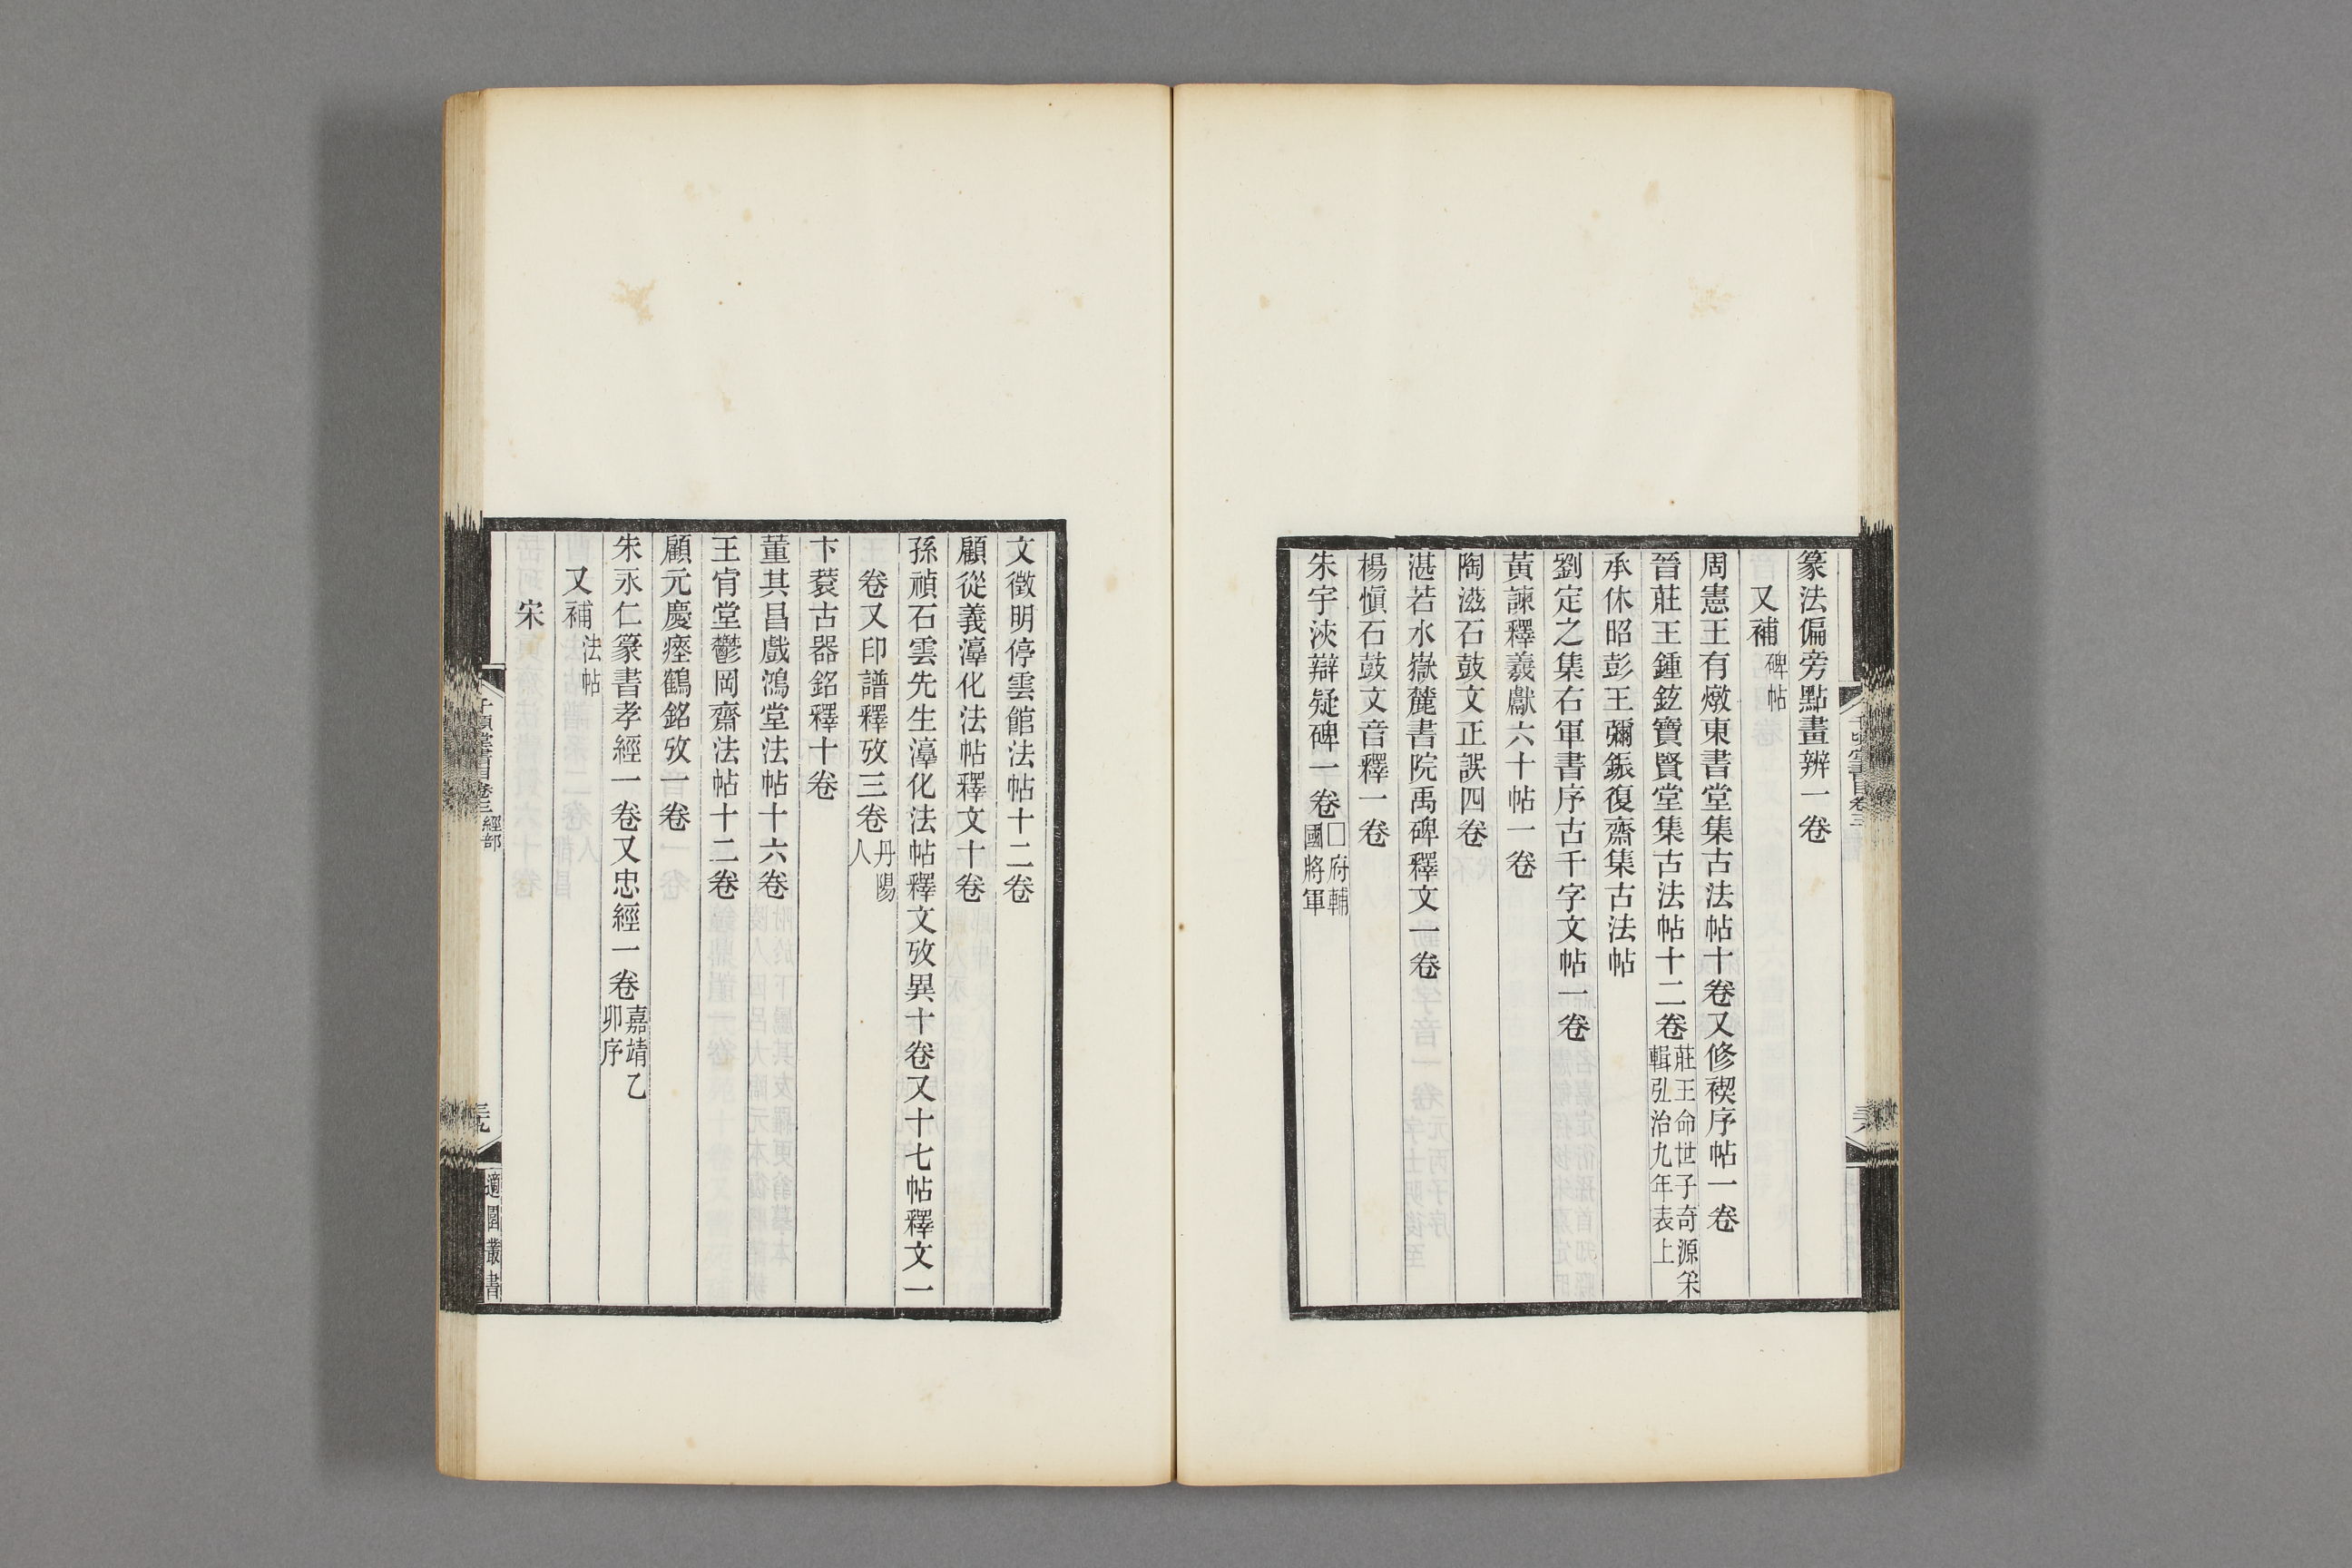 篆法偏旁點畫辨一卷
又補碑帖
周憲王有燉東書堂集古法帖十卷又修禊序帖一卷
晉莊王鍾鉉寶賢堂集古法帖十二卷莊王命世子奇源采輯弘治九年表上
承休昭彭王彌鋠復齋集古法帖
劉定之集右軍書序古千字文帖一卷
黃諫釋義獻六十帖一卷
陶滋石鼓文正誤四卷
湛若水嶽麓書院禹碑釋文一卷
楊愼石鼓文音釋一卷
朱宇浹辯疑碑一卷□府輔國將軍
文徵明停雲館法帖十二卷
顧從義湻化法帖釋文十卷
孫禎石雲先生湻化法帖釋文攷異十卷又十七帖釋文一
卷又印譜釋攷三卷丹陽人
卞蓘古器銘釋十卷
董其昌戲鴻堂法帖十六卷
王肯堂鬱岡齋法帖十二卷
顧元慶瘞鶴銘攷一卷
朱永仁篆書孝經一卷又忠經一卷嘉靖乙卯序
又補法帖
宋
千頃堂書目卷三 經部
三十九
適園叢書